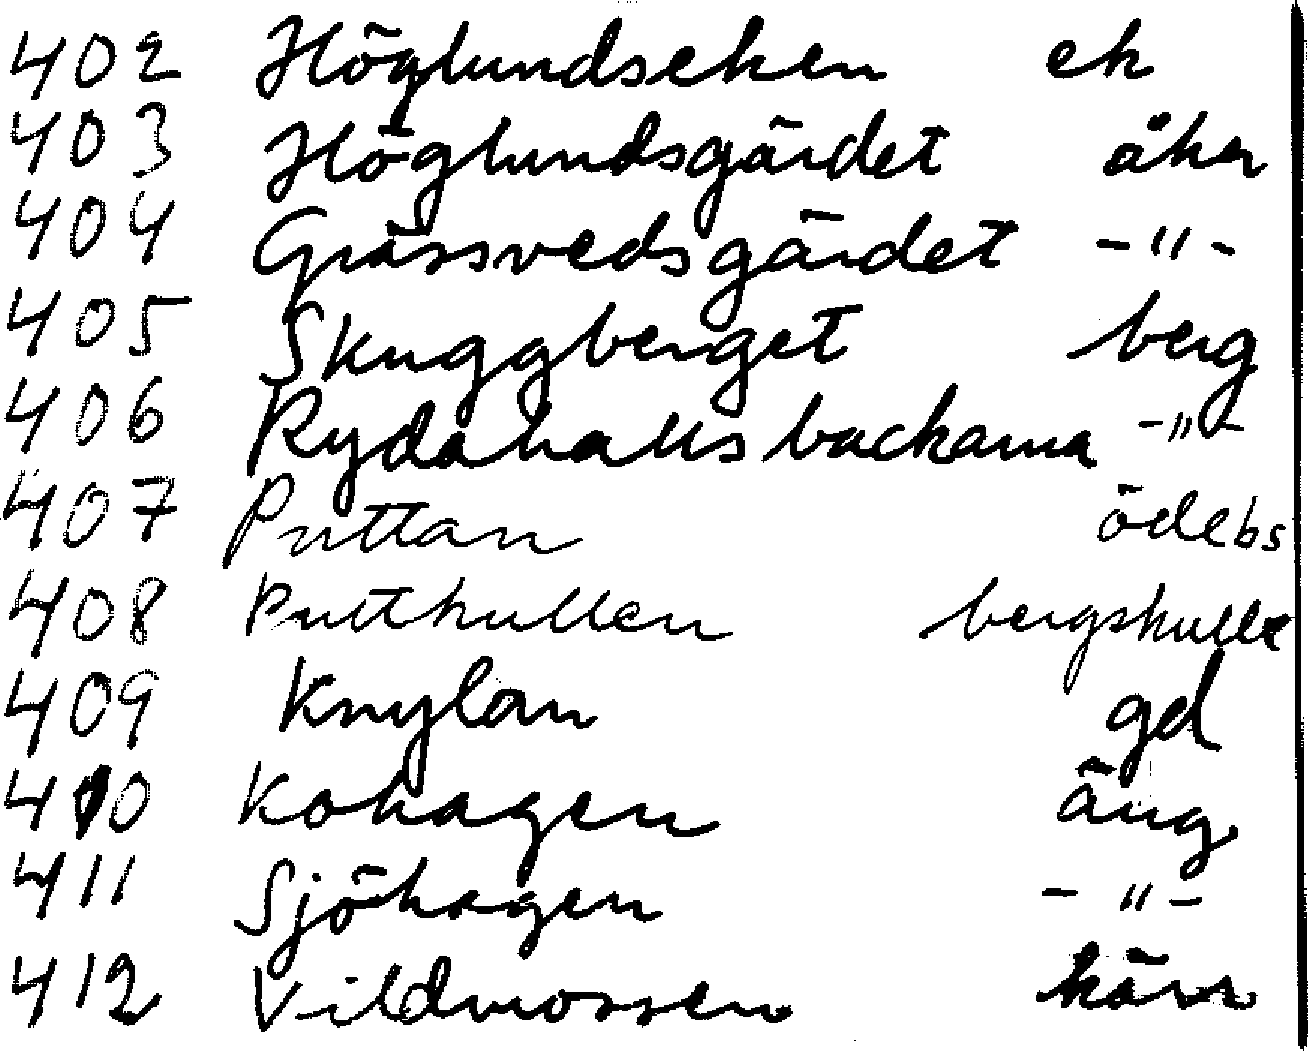 402 Höglundseken ek
403 Höglundsgärdet åker
404 Grässvedsgärdet -"-
405 Skuggberget berg
406 Rydahallsbackarna -"-
407 Puttan ödebs
408 Puttkullen bergskulle
409 Knylan gd
410 Kohagen äng
411 Sjöhagen -"-
412 Vildmossen kärr